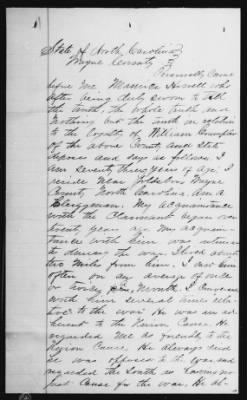 State of North Carolina
Wayne County
Personally Came
before me, Howell who
after being duly sworn to tell
the truth, the whole truth, and
Nothing but the truth in relation
to the loyalty of William
of the above County and State
deposes and says as follows. I
am seventy three years of age. I
reside Near Goldsboro Wayne
County North Carolina, am a
Clergyman. My acquaintance
with the Claimant began over
twenty years ago. My acquain-
tance with him was intimate
during the war. I lived about
two miles from him. I saw him
often on an average of once
or twice per Month. I Conversed
with him several times rela-
tive to the war. He was an ad-
herent to the Union Cause. He
regarded me as friendly to the
Union Cause. He always said
he was opposed to the war and
regarded the South as having no
just Cause for the war. He al-